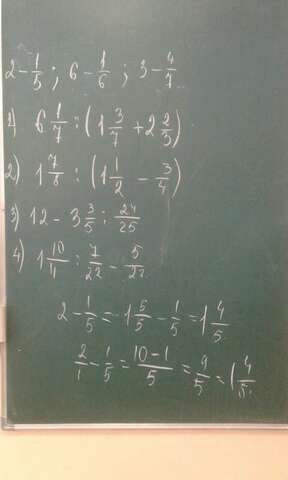 2 - 1/5 ; 6 - 1/6 ; 3 - 4/7
1) 6 1/7 : (1 3/7 + 2 2/3)
2) 1 7/8 : (1 1/2 - 3/4)
3) 12 - 3 3/5 : 24/25
4) 1 10/11 : 7/22 - 5/22
2 - 1/5 = 1 5/5 - 1/5 = 1 4/5
2/1 - 1/5 = (10 - 1)/5 = 9/5 = 1 4/5